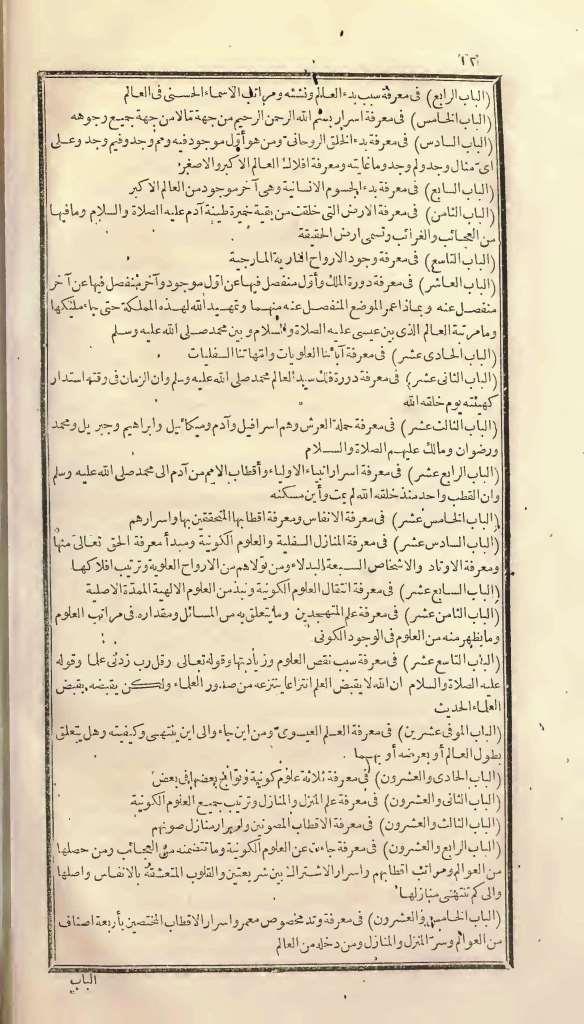 ١٢
(الباب الرابع) في معرفة سبب بدء العالم ونشئه ومراتب الاسماء الحسنى فى العالم
(الباب الخامس) فى معرفة اسرار بسم الله الرحمن الرحيم من جهة تمالا من جهة جميع وجوهه
(الباب السادس) فى معرفة بدء الخلق الروحانى ومن هو أول موجود فيه ومم وجد وفيم وجد وعلى
اى مثال وجد ولم وجد وما غايته ومعرفة افلاك العالم الاكبر والاصغر
(الباب السابع) فى معرفة بدء الجسوم الانسانية وهى آخر موجود من العالم الاكبر
(الباب الثامن) فى معرفة الارض التى خلقت من بقية خميرة طينة آدم عليه الصلاة والسلام وما فيها
من العجائب والغرائب وتسمى ارض الحقيقة
(الباب التاسع) فى معرفة وجود الارواح النارية المارجية
(الباب العاشر) فى معرفة دورة الملك وأول منفصل فيها عن اول موجود وآخر منفصل فيها عن آخر
منفصل عنه وبماذا عمر الموضع المنفصل عنه منهما وتمهيد الله لهذه المملكة حتى جاء مليكها
وما مرتبة العالم الذى بين عيسى عليه الصلاة والسلام وبين محمد صلى الله عليه وسلم
(الباب الحادى عشر) فى معرفة آبائنا العلويات وامهاتنا السفليات
(الباب الثانى عشر) فى معرفة دورة فلك سيد العالم محمد صلى الله عليه وسلم وان الزمان فى وقته استدار
كهيئته يوم خلقه الله
(الباب الثالث عشر) فى معرفة حملة العرش وهم اسرافيل وآدم وميكائيل وابراهيم وجبريل ومحمد
ورضوان ومالك عليهم الصلاة والسلام
(الباب الرابع عشر) فى معرفة اسرار انبياء الاولياء وأقطاب الامم من آدم الى محمد صلى الله عليه وسلم
وان القطب واحد منذ خلقه الله لم يمت وأين مسكنه
(الباب الخامس عشر) فى معرفة الانفاس ومعرفة اقطابها المتحققين بها واسرارهم
(الباب السادس عشر) فى معرفة المنازل السفلية والعلوم الكونية ومبدأ معرفة الحق تعالى منها
ومعرفة الاوتاد والاشخاص السبعة البدلاء ومن تولاهم من الارواح العلوية وترتيب افلاكها
(الباب السابع عشر) فى معرفة انتقال العلوم الكونية ونبذ من العلوم الالهية الممدة الاصلية
(الباب الثامن عشر) فى معرفة علم المتهجدين وما يتعلق به من المسائل ومقداره فى مراتب العلوم
وما يظهر منه من العلوم فى الوجود الكونى
(الباب التاسع عشر) فى معرفة سبب نقص العلوم وزيادتها وقوله تعالى وقل رب زدنى علما وقوله
عليه الصلاة والسلام ان الله لا يقبض العلم انتزاعا ينتزعه من صدور العلماء ولكن يقبضه بقبض
العلماء الحديث
(الباب الموفى عشرين) فى معرفة العلم العيسوى ومن اين جاء والى اين ينتهى وكيفيته وهل يتعلق
بطول العالم أو بعرضه أو بهما
(الباب الحادى والعشرون) فى معرفة ثلاثة علوم كونية وتوالج بعضها فى بعض
(الباب الثانى والعشرون) فى معرفة علم المنزل والمنازل وترتيب جميع العلوم الكونية
(الباب الثالث والعشرون) فى معرفة الاقطاب المصونين واسرار منازل صونهم
(الباب الرابع والعشرون) فى معرفة جاءت عن العلوم الكونية وما تتضمنه من العجائب ومن حصلها
من العوالم ومراتب اقطابهم واسرار الاشتراك بين شريعتين والقلوب المتعشقة بالانفاس واصلها
والى كم تنتهى منازلها
(الباب الخامس والعشرون) فى معرفة وتد مخصوص معمر واسرار الاقطاب المختصين بأربعة اصناف
من العوالم وسر المنزل والمنازل ومن دخله من العالم
الباب